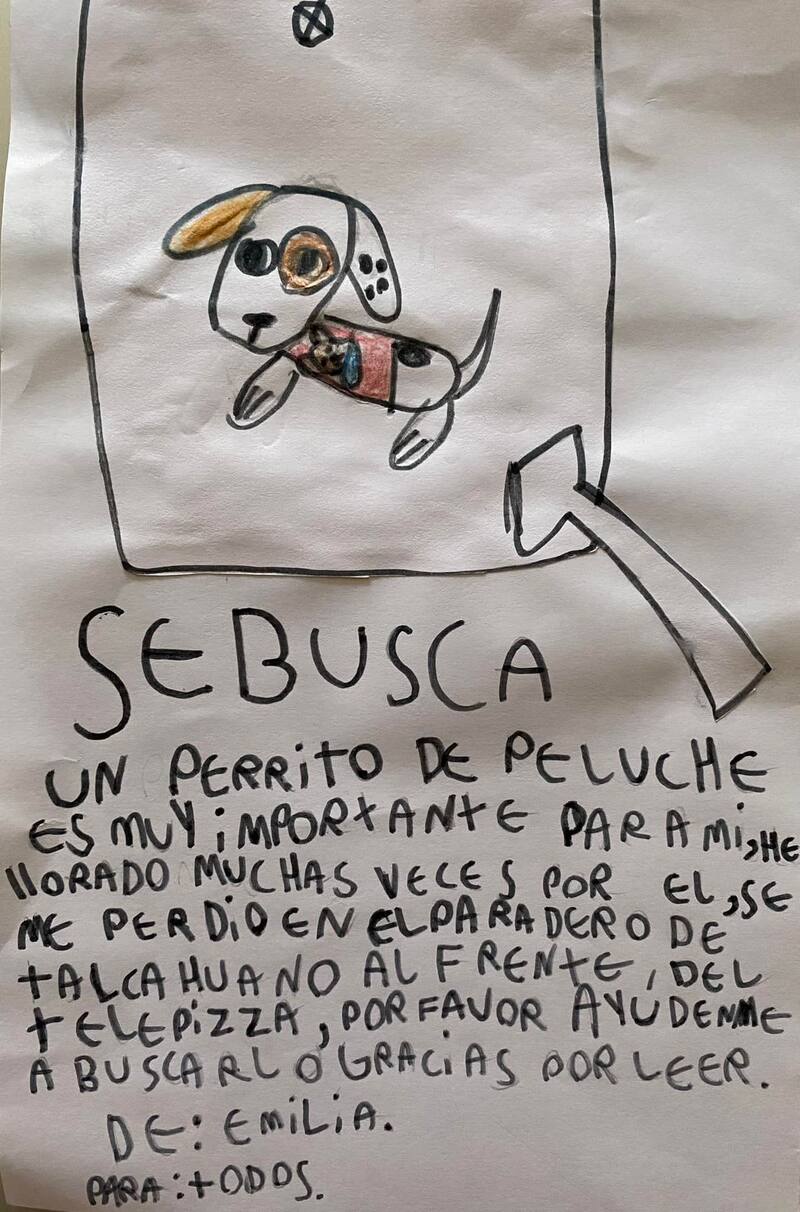 SE BUSCA
UN PERRiTO DE PELUCHE
ES MUY iMPORtANtE PARA Mi, HE
llORADO MUCHAS VECES POR EL, SE
ME PERDiO EN EL PARADERO DE
tALCAHUANO AL FRENtE, DEL
tELEPiZZA, POR FAVOR AYUDENME
A BUSCARLO GRACiAS POR LEER.
DE: EMiLiA.
PARA: tODOS.